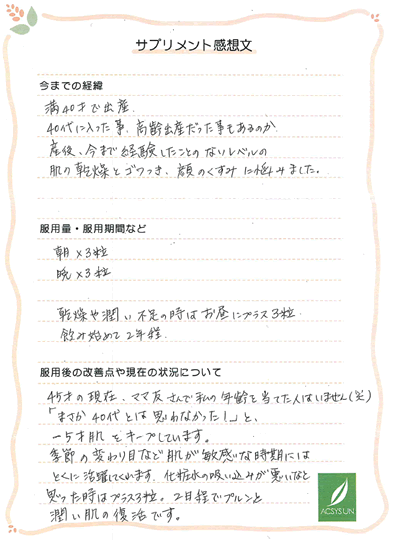 サプリメント感想文
今までの経緯
満40才で出産.
40代に入った事、高齢出産だった事もあるのか
産後、今まで経験したことのないレベルの
肌の乾燥とゴワつき、顔のくすみに悩みました。
服用量・服用期間など
朝×3粒
晩×3粒
乾燥や潤い不足の時はお昼にプラス3粒
飲み始めて2年程.
服用後の改善点や現在の状況について
45才の現在、ママ友さんで私の年齢を当てた人はいません(笑)
「まさか40代とは思わなかった!」と、
－5才肌をキープしています。
季節の変わり目など肌が敏感な時期には
とくに活躍してくれます。化粧水の吸い込みが悪いなと
思った時はプラス3粒。2日程でプルンと
潤い肌の復活です。
ACSYSUN